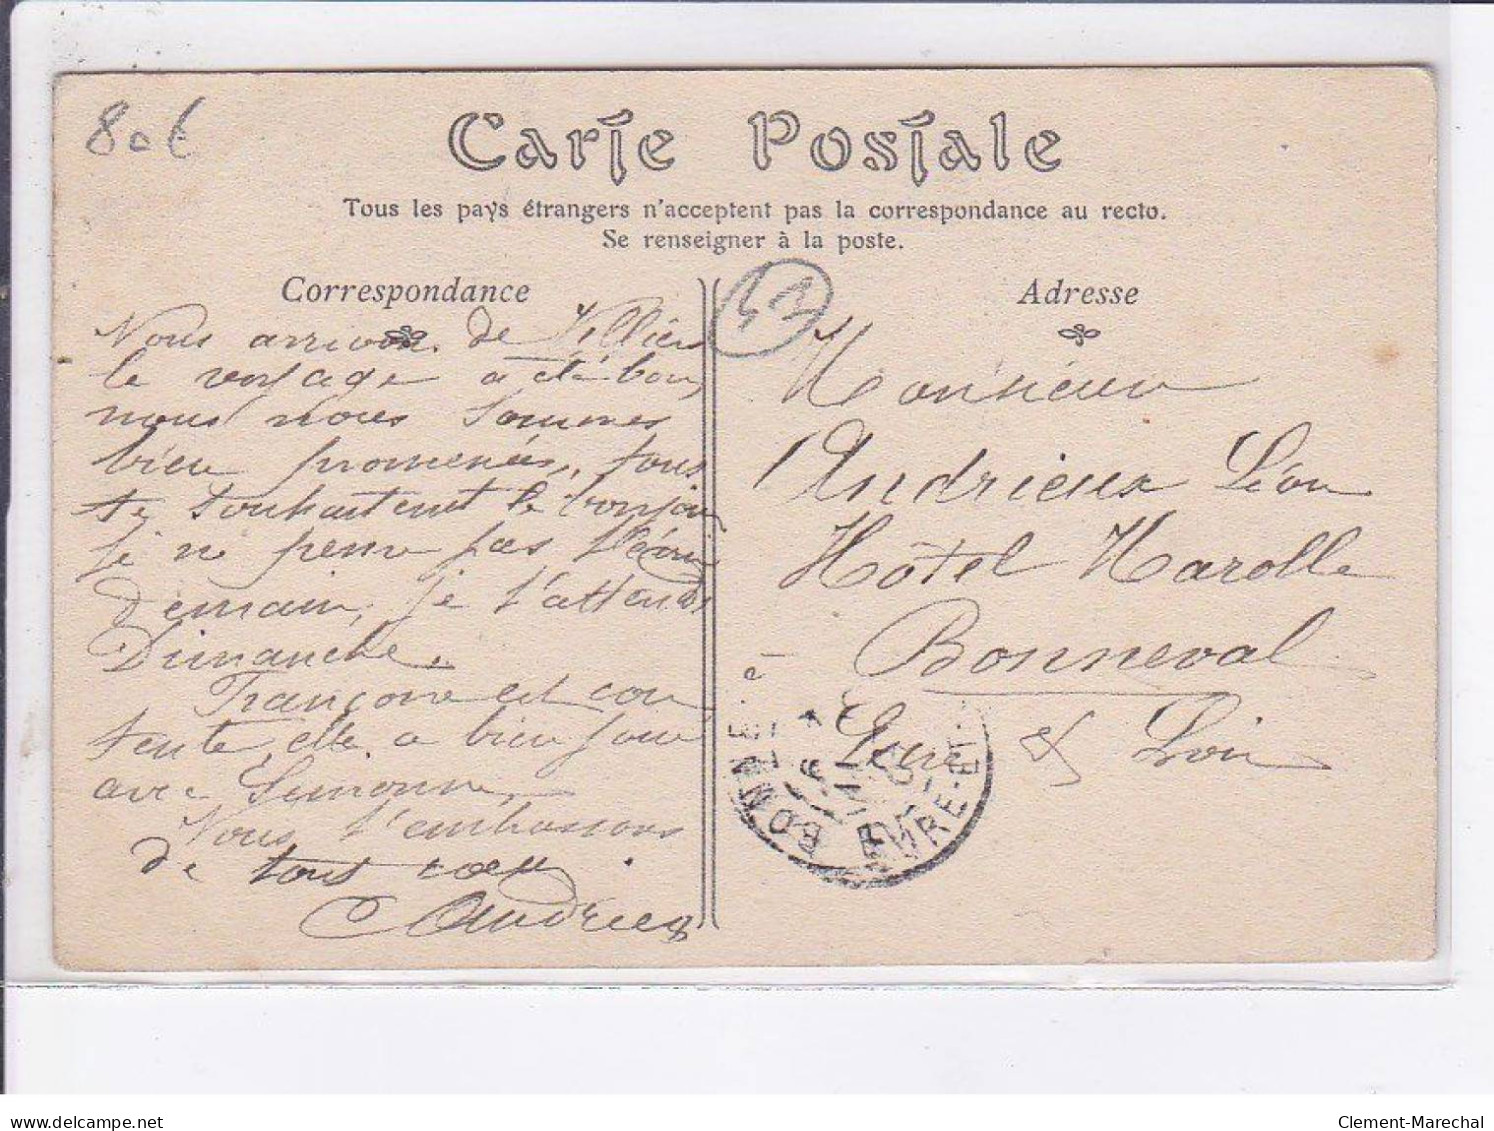 80€
Carte Postale
Tous les pays étrangers n'acceptent pas la correspondance au recto.
Se renseigner à la poste.
Correspondance
Nous arrivons de Villiers
le voyage a été bon,
nous nous sommes
bien promenés, tous
te souhaitent le bonjour
je ne pense pas t'écrire
demain, je t'attends
Dimanche.
Françoise est con
tente, elle a bien joué
avec Simonne,
Nous t'embrassons
de tout cœur.
Andrieux
Adresse
Monsieur
Andrieux Léon
Hôtel Marolle
à Bonneval
Eure & Loir
BONNEVAL
EURE-ET-
delcampe.net
Clement-Marechal